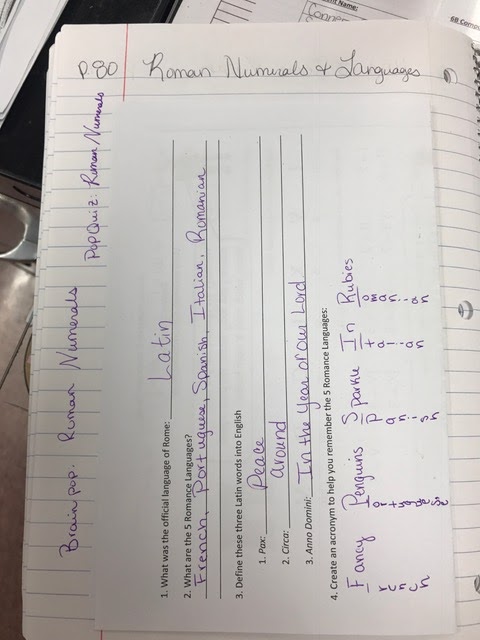 P. 80 Roman Numerals & Languages
Brain pop. Roman Numerals Pop Quiz: Roman Numerals
1. What was the official language of Rome: Latin
2. What are the 5 Romance Languages?
French, Portuguese, Spanish, Italian, Romanian
3. Define these three Latin words into English
1. Pax: Peace
2. Circa: around
3. Anno Domini: In the Year of our Lord
4. Create an acronym to help you remember the 5 Romance Languages:
Fancy Penguins Sparkle In Rubies